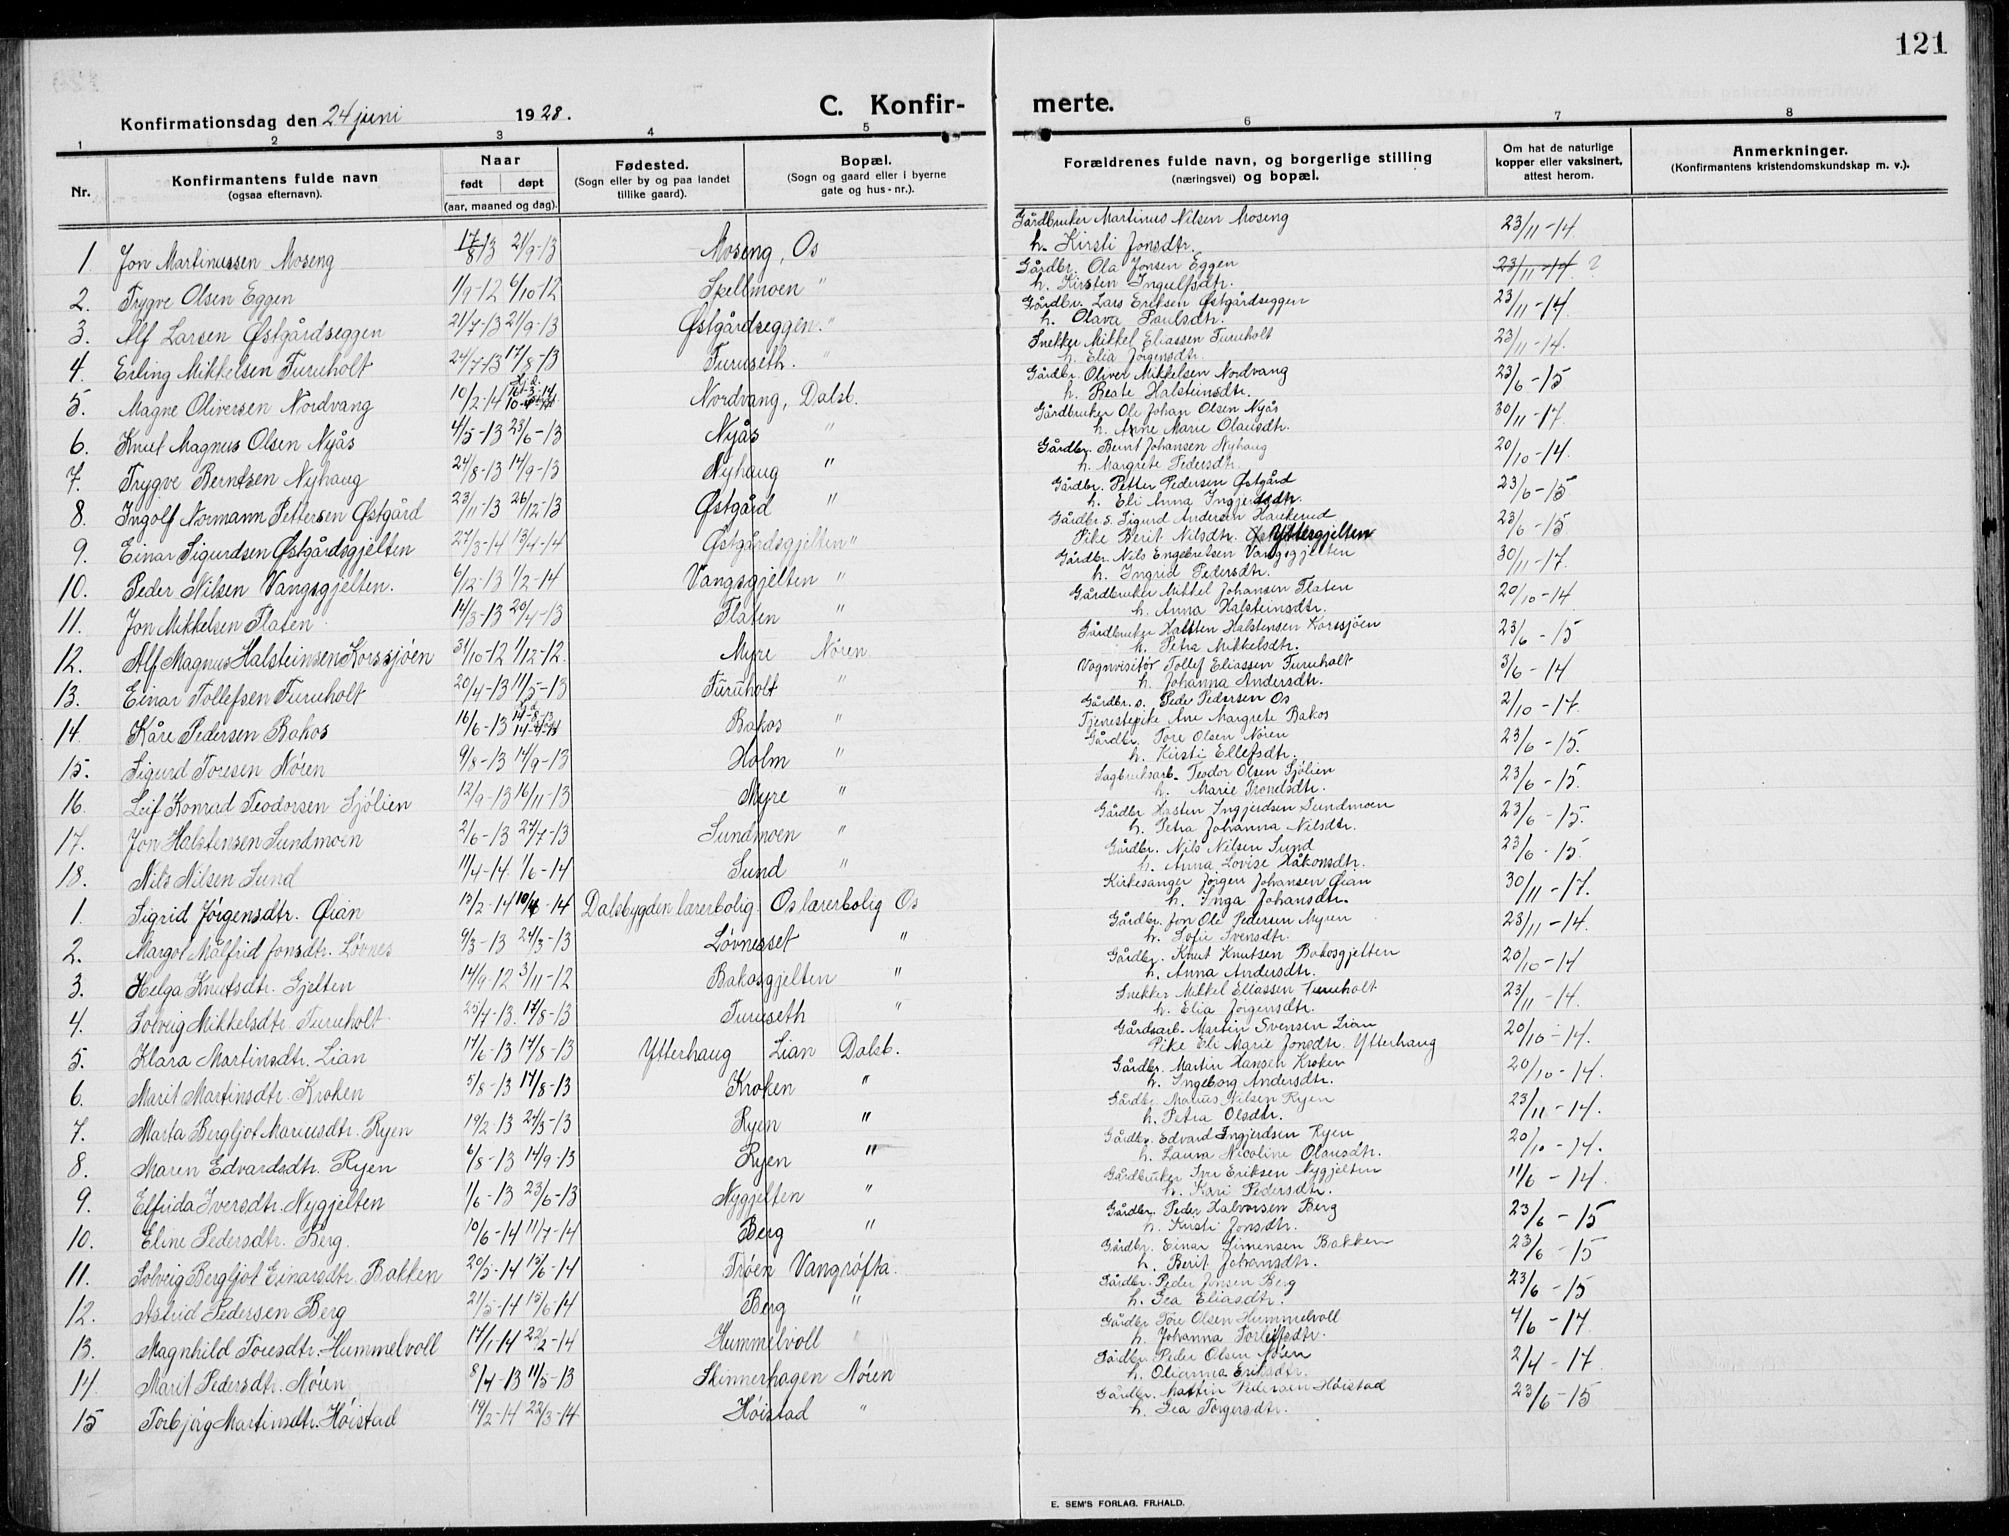 121
Konfirmationsdag den 24 juni 1928.
C. Konfir-
merte.
1 2 3 4 5 6 7 8
Nr.
Konfirmantens fulde navn
(ogsaa efternavn).
Naar
født døpt
(aar, maaned og dag).
Fødested.
(Sogn eller by og paa landet
tillike gaard).
Bopæl.
(Sogn og gaard eller i byerne
gate og hus-nr.).
Forældrenes fulde navn, og borgerlige stilling
(næringsvei) og bopæl.
Om hat de naturlige
kopper eller vaksinert,
attest herom.
Anmerkninger.
(Konfirmantens kristendomskundskap m. v.).
1. Jon Martinussen Moseng 17/8 13 21/9-13 Moseng, Os Gårdbruker Martinus Nilsen Moseng 23/11-14
h. Kirsti Jonsdtr.
2. Trygve Olsen Eggen 1/9-12 6/10-12 Spellmoen " Gårdbr. Ola Jonsen Eggen 23/11-14 ?
h. Kirsten Ingulfsdtr.
3. Alf Larsen Østgårdseggen 21/7-13 21/9-13 Østgårdseggen. " Gårdbr. Lars Eriksen Østgårdseggen 23/11-14
h. Olava Paulsdtr.
4. Erling Mikkelsen Furuholt 24/7-13 17/8-13 Furuseth. " Snekker Mikkel Eliassen Furuholt 23/11-14.
h. Elia Jørgensdtr.
5. Magne Oliversen Nordvang 10/2-14 Nordvang, Dalsb. Gårdbr. Oliver Mikkelsen Nordvang 23/6-15
h. Beate Halsteinsdtr.
6. Knut Magnus Olsen Nyås 4/5-13 23/6-13 Nyås " Gårdbruker Ole Johan Olsen Nyås 30/11-17.
h. Anne Marie Olausdtr.
7. Trygve Berntsen Nyhaug 24/8-13 14/9-13 Nyhaug " Gårdbr. Bernt Johansen Nyhaug 20/10-14.
h. Margrete Pedersdtr.
8. Ingolf Normann Pettersen Østgård 23/11-13 26/12-13 Østgård " Gårdbr. Petter Pedersen Østgård 23/6-15
h. Eli Anna Ingjerdsdtr.
9. Einar Sigurdsen Østgårdsgjelten 27/3-14 13/4-14 Østgårdsgjelten " Gårdbr. s. Sigurd Andersen Haukerud 23/6-15
Pike Berit Nilsdtr. Yttergjelten
10. Peder Nilsen Vangsgjelten. 6/12-13 1/2-14 Vangsgjelten " Gårdbr. Nils Engebretsen Vangsgjelten 30/11-17.
h. Ingrid Pedersdtr.
11. Jon Mikkelsen Flaten 14/3-13 20/4-13 Flaten " Gårdbruker Mikkel Johansen Flaten 20/10-14
h. Anna Halsteinsdtr.
12. Alf Magnus Halsteinsen Korssjøen 31/10-12 1/12-12. Myre Nøren Gårdbruker Halsten Halstensen Korssjöen 23/6-15
h. Petra Mikkelsdtr.
13. Einar Tollefsen Furuholt 20/4-13 11/5-13 Furuholt " Vognvisitør Tollef Eliassen Furuholt 3/6-14
h. Johanna Andersdtr.
14. Kåre Pedersen Bakos 16/6-13 Bakos " Gårdbr. s. Peder Pedersen Os 2/10-17.
Tjenestepike Ane Margrete Bakos
15. Sigurd Toresen Nören 9/8-13 14/9-13 Holm " Gårdbr. Tore Olsen Nören 23/6-15.
h. Kirsti Ellefsdtr.
16. Leif Konrad Teodorsen Sjölien 12/9-13 16/11-13 Myre " Sagbruksarb. Teodor Olsen Sjölien 23/6-15.
h. Marie Trondsdtr.
17. Jon Halstensen Sundmoen 2/6-13 27/7-13 Sundmoen " Gårdbr. Halsten Ingjerdsen Sundmoen 23/6-15.
h. Petra Johanna Nilsdtr.
18. Nils Nilsen Sund 11/4-14. 1/6-14 Sund " Gårdbr. Nils Nilsen Sund 23/6-15.
h. Anna Lovise Håkonsdtr.
1. Sigrid Jörgensdtr. Øian 15/2-14 10/4-14 Dalsbygden lærerbolig. Os lærerbolig Os Kirkesanger Jörgen Johansen Øian 30/11-17.
h. Inga Johansdtr.
2. Margot Målfrid Jonsdtr. Lövnes 9/3-13 24/3-13 Lövnesset " Gårdbr. Jon Ole Pedersen Myren 23/11-14.
h. Sofie Svensdtr.
3. Helga Knutsdtr. Gjelten 14/9-12 3/11-12 Bakosgjelten " Gårdbr. Knut Knutsen Bakosgjelten 20/10-14
h. Anna Andersdtr.
4. Solveig Mikkelsdtr. Furuholt 25/7-13. 17/8-13 Furuseth " Snekker Mikkel Eliassen Furuholt 23/11-14.
h. Elia Jörgensdtr.
5. Klara Martinsdtr. Lian 17/6-13 17/8-13 Ytterhaug Lian Dalsb. Gårdsarb. Martin Svensen Lian 20/10-14.
Pike Eli Marie Jonsdtr. Ytterhaug
6. Marit Martinsdtr. Kroken 5/8-13 17/8-13 Kroken " Gårdbr. Martin Hansen Kroken 20/10-14.
h. Ingeborg Andersdtr.
7. Marta Bergljot Mariusdtr. Ryen 19/2-13 24/3-13 Ryen " Gårdbr. Marius Nilsen Ryen 23/11-14.
h. Petra Olsdtr.
8. Maren Edvardsdtr. Ryen 6/8-13 14/9-13 Ryen " Gårdbr. Edvard Ingjerdsen Ryen 20/10-14.
h. Laura Nicoline Olausdtr.
9. Elfrida Iversdtr. Nygjelten 1/6-13 23/6-13 Nygjelten " Gårdbruker Iver Eriksen Nygjelten 11/6-14.
h. Kari Pedersdtr.
10. Eline Pedersdtr. Berg. 10/6-14 11/7-14 Berg " Gårdbr. Peder Halvorsen Berg 23/6-15
h. Kirsti Jonsdtr.
11. Solveig Bergljot Einarsdtr. Bakken 20/5-14 15/6-14 Trøen Vangröfta. Gårdbr. Einar Simensen Bakken 23/6-15
h. Berit Johansdtr.
12. Astrid Pedersen Berg 21/5-14 15/6-14 Berg " Gårdbr. Peder Jonsen Berg 23/6-15
h. Gea Eliasdtr.
13. Magnhild Toresdtr. Hummelvoll 17/1-14 22/2-14 Hummelvoll " Gårdbr Tore Olsen Hummelvoll 4/6-17
h. Johanna Torleifsdtr.
14. Marit Pedersdtr. Nören 8/4-13 11/5-13 Skinnerhagen Nören Gårdbr. Peder Olsen Nören 2/4-17.
h. Olianna Eriksdtr.
15 Torbjörg Martinsdtr. Höistad 14/2-14 22/3-14 Höistad " Gårdbr. Martin Pedersen Höistad 23/6-15
h. Gea Torgersdtr.
E. SEM'S FORLAG. FR.HALD.